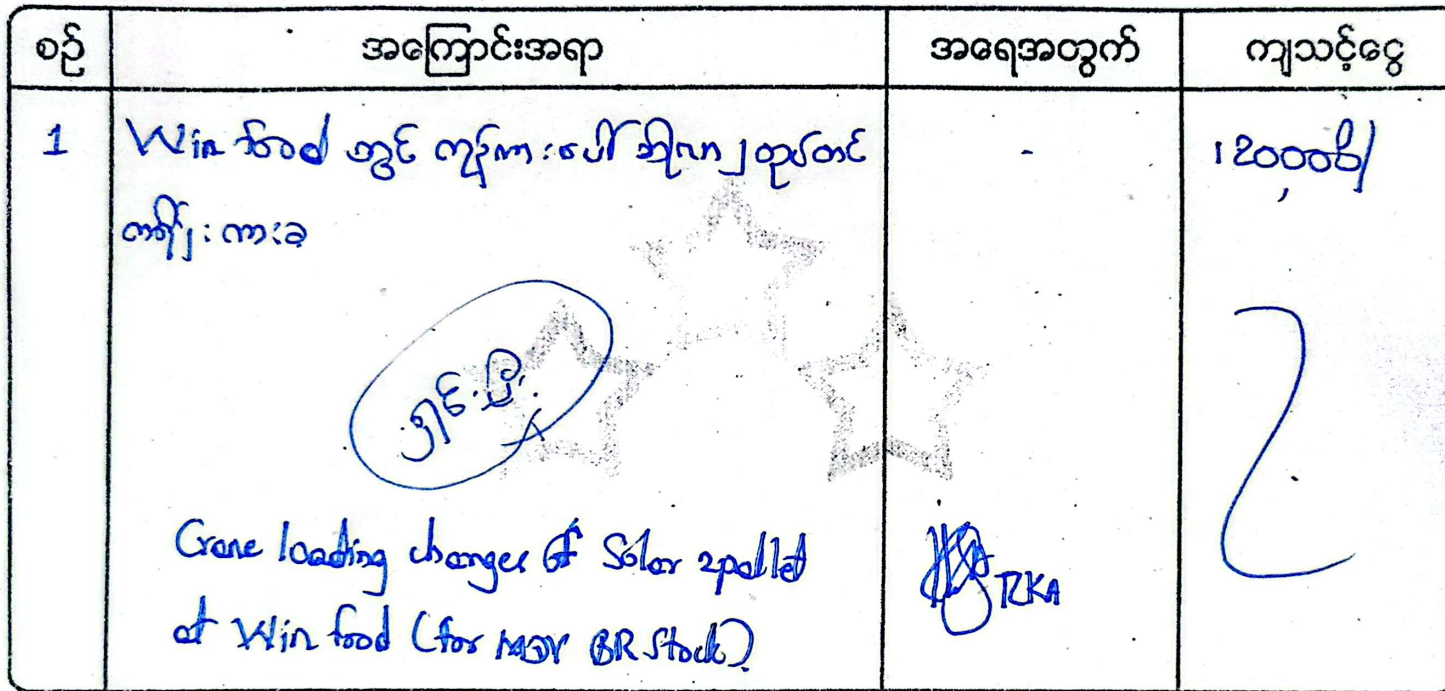 စဉ် အကြောင်းအရာ အရေအတွက် ကျသင့်ငွေ
1 Win food တွင် ကုန်ကားပေါ် ဆိုလာ ၂ ထုပ်တင် -
ကားခ
ရှင်းပြီး
Crane loading charges of Solar 2pallet
at Win food (for MDY BR Stock)